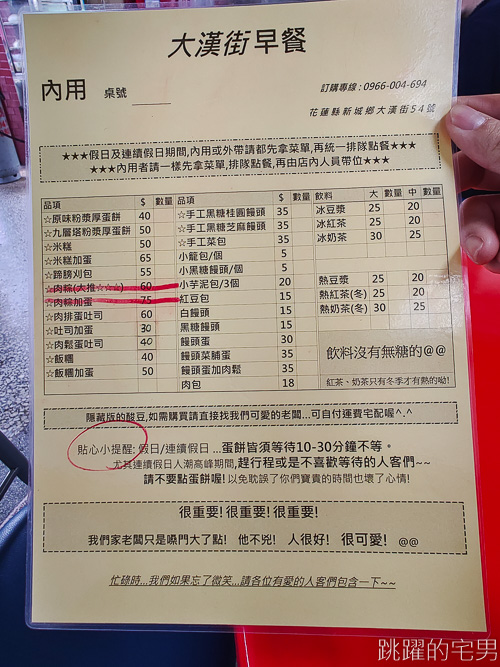 大漢街早餐
內用 桌號
訂購專線：0966-004-694
花蓮縣新城鄉大漢街54號
★★★假日及連續假日期間,內用或外帶請都先拿菜單,再統一排隊點餐★★★
★★★內用者請一樣先拿菜單,排隊點餐,再由店內人員帶位★★★
品項 $ 數量 品項 $ 數量 飲料 大 數量 中 數量
☆原味粉漿厚蛋餅 40 ☆手工黑糖桂圓饅頭 35 冰豆漿 25 20
☆九層塔粉漿厚蛋餅 50 ☆手工黑糖芝麻饅頭 35 冰紅茶 25 20
☆米糕 50 ☆手工菜包 35 冰奶茶 30 25
☆米糕加蛋 65 小籠包/個 5
☆蹄膀刈包 55 小黑糖饅頭/個 5
☆肉粽(大推☆☆☆) 60 小芋泥包/3個 20 熱豆漿 25 20
☆肉粽加蛋 75 紅豆包 15 熱紅茶(冬) 25 20
☆肉排蛋吐司 60 白饅頭 15 熱奶茶(冬) 30 25
☆吐司加蛋 30 黑糖饅頭 15
☆肉鬆蛋吐司 40 饅頭蛋 30 飲料沒有無糖的@@
☆飯糰 40 饅頭菜脯蛋 35
☆飯糰加蛋 50 饅頭蛋加肉鬆 35 紅茶、奶茶只有冬季才有熱的呦!
肉包 18
隱藏版的酸豆,如需購買請直接找我們可愛的老闆...可自付運費宅配喔^.^
貼心小提醒: 假日/連續假日 ...蛋餅皆須等待10-30分鐘不等。
尤其連續假日人潮高峰期間,趕行程或是不喜歡等待的人客們~~
請不要點蛋餅喔! 以免耽誤了你們寶貴的時間也壞了心情!
很重要! 很重要! 很重要!
我們家老闆只是嗓門大了點! 他不兇! 人很好! 很可愛! @@
忙碌時...我們如果忘了微笑...請各位有愛的人客們包含一下~~
跳躍的宅男